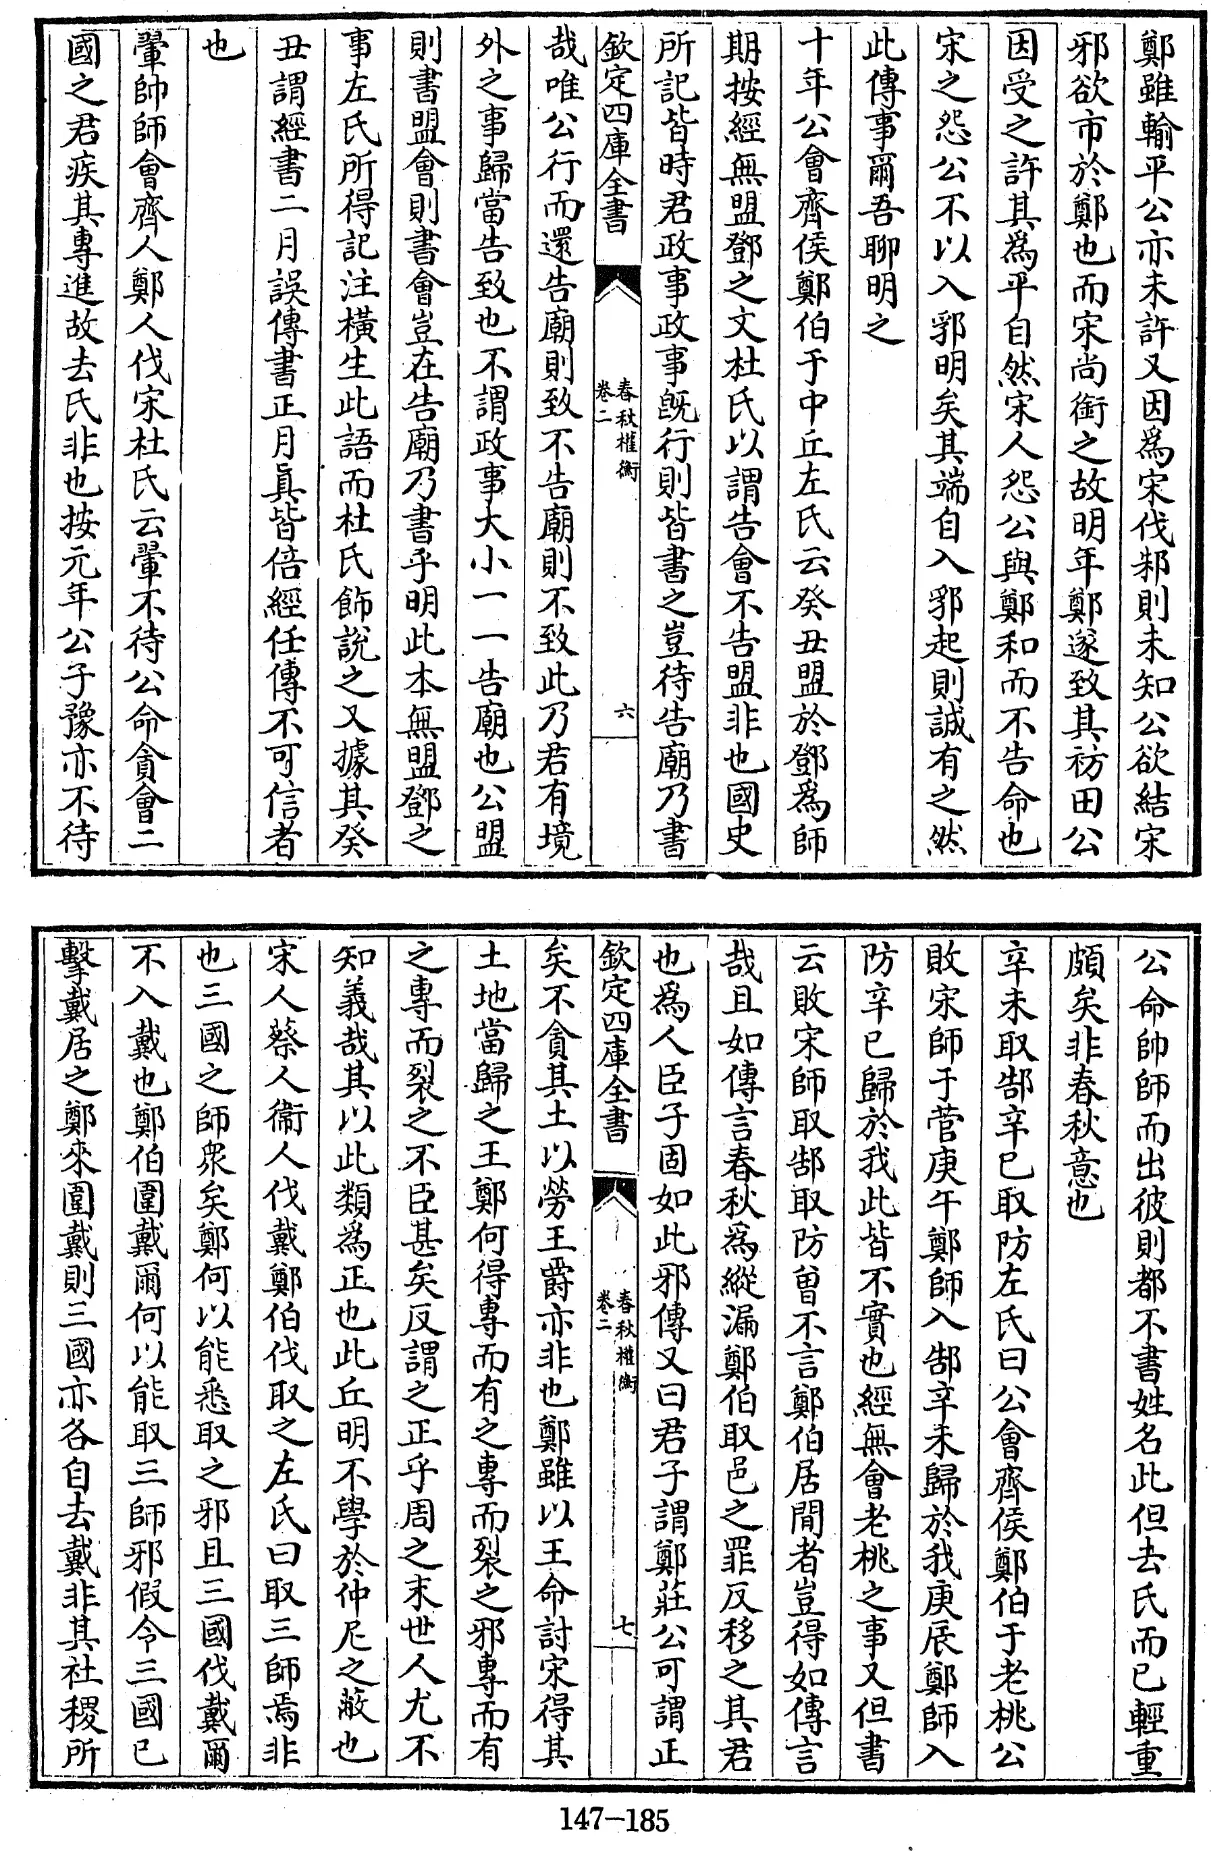 鄭雖輸平公亦未許又因為宋伐邾則未知公欲結宋
邪欲市於鄭也而宋尚銜之故明年鄭遂致其祊田公
因受之許其為平自然宋人怨公與鄭和而不告命也
宋之怨公不以入郛明矣其端自入郛起則誠有之然
此傳事爾吾聊明之
十年公會齊侯鄭伯于中丘左氏云癸丑盟於鄧為師
期按經無盟鄧之文杜氏以謂告會不告盟非也國史
所記皆時君政事政事旣行則皆書之豈待告廟乃書
欽定四庫全書
春秋權衡
卷二
六
哉唯公行而還告廟則致不告廟則不致此乃君有境
外之事歸當告致也不謂政事大小一一告廟也公盟
則書盟會則書會豈在告廟乃書乎明此本無盟鄧之
事左氏所得記注橫生此語而杜氏飾說之又據其癸
丑謂經書二月誤傳書正月眞皆倍經任傳不可信者
也
翬帥師會齊人鄭人伐宋杜氏云翬不待公命貪會二
國之君疾其專進故去氏非也按元年公子豫亦不待
公命帥師而出彼則都不書姓名此但去氏而已輕重
頗矣非春秋意也
辛未取郜辛已取防左氏曰公會齊侯鄭伯于老桃公
敗宋師于菅庚午鄭師入郜辛未歸於我庚辰鄭師入
防辛已歸於我此皆不實也經無會老桃之事又但書
云敗宋師取郜取防曾不言鄭伯居間者豈得如傳言
哉且如傳言春秋為縱漏鄭伯取邑之罪反移之其君
也為人臣子固如此邪傳又曰君子謂鄭莊公可謂正
欽定四庫全書
春秋權衡
卷二
七
矣不貪其土以勞王爵亦非也鄭雖以王命討宋得其
土地當歸之王鄭何得專而有之專而裂之邪專而有
之專而裂之不臣甚矣反謂之正乎周之末世人尤不
知義哉其以此類為正也此丘明不學於仲尼之蔽也
宋人蔡人衞人伐戴鄭伯伐取之左氏曰取三師焉非
也三國之師衆矣鄭何以能悉取之邪且三國伐戴爾
不入戴也鄭伯圍戴爾何以能取三師邪假令三國已
擊戴居之鄭來圍戴則三國亦各自去戴非其社稷所
147-185